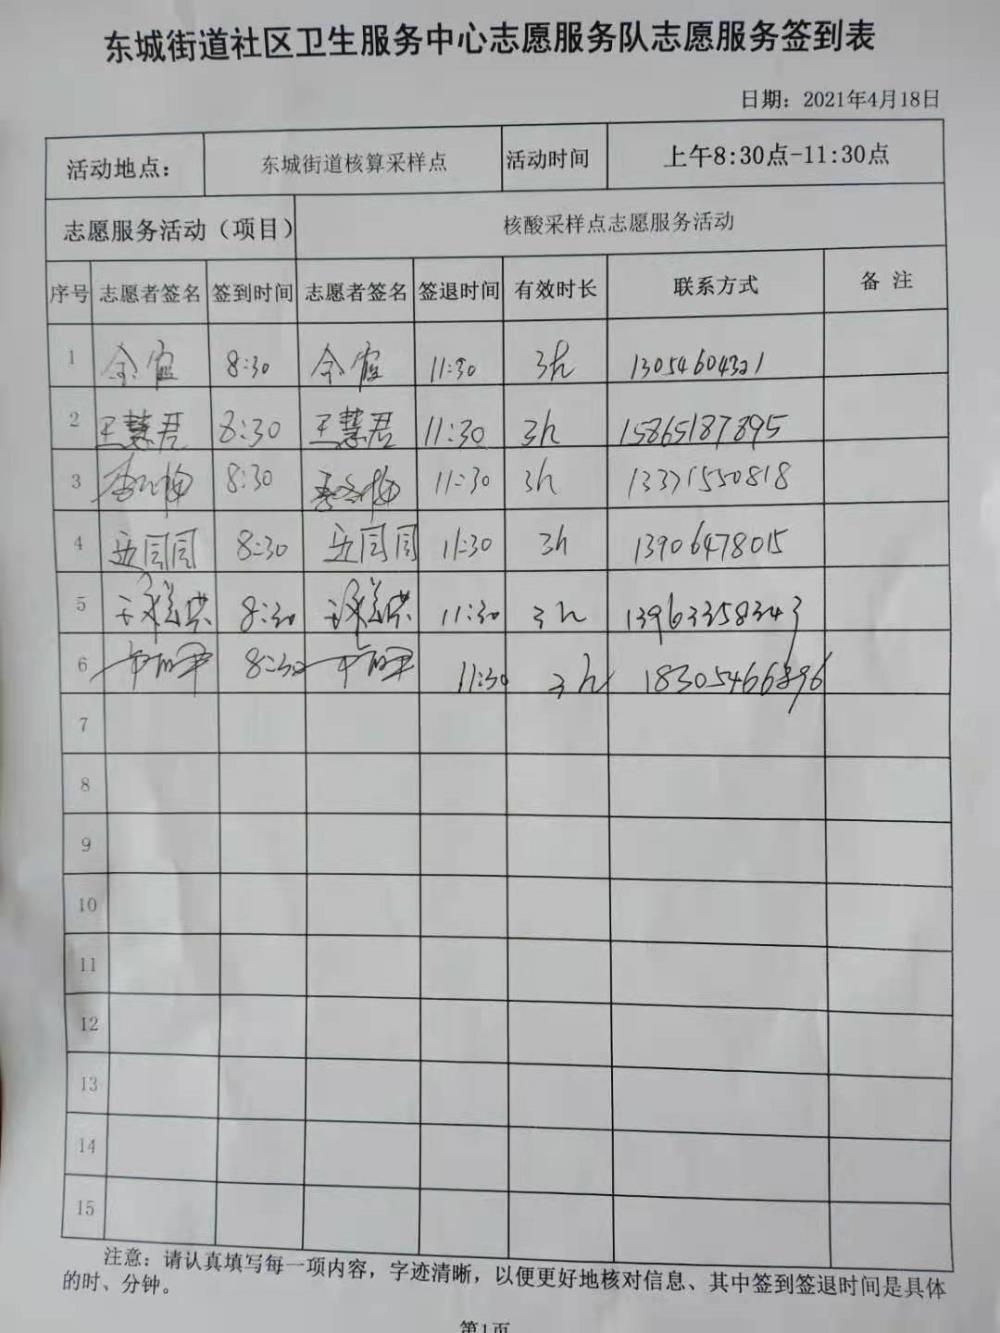 东城街道社区卫生服务中心志愿服务队志愿服务签到表
日期：2021年4月18日
活动地点： 东城街道核算采样点 活动时间 上午8:30点-11:30点
志愿服务活动（项目） 核酸采样点志愿服务活动
序号 志愿者签名 签到时间 志愿者签名 签退时间 有效时长 联系方式 备 注
1 8:30 11:30 3h 13054604321
2 王慧君 8:30 王慧君 11:30 3h 15865187895
3 8:30 11:30 3h 13371550818
4 8:30 11:30 3h 13906478015
5 8:30 11:30 3h 13963358343
6 8:30 11:30 3h 18305466896
7
8
9
10
11
12
13
14
15
注意：请认真填写每一项内容，字迹清晰，以便更好地核对信息、其中签到签退时间是具体
的时、分钟。
第1页